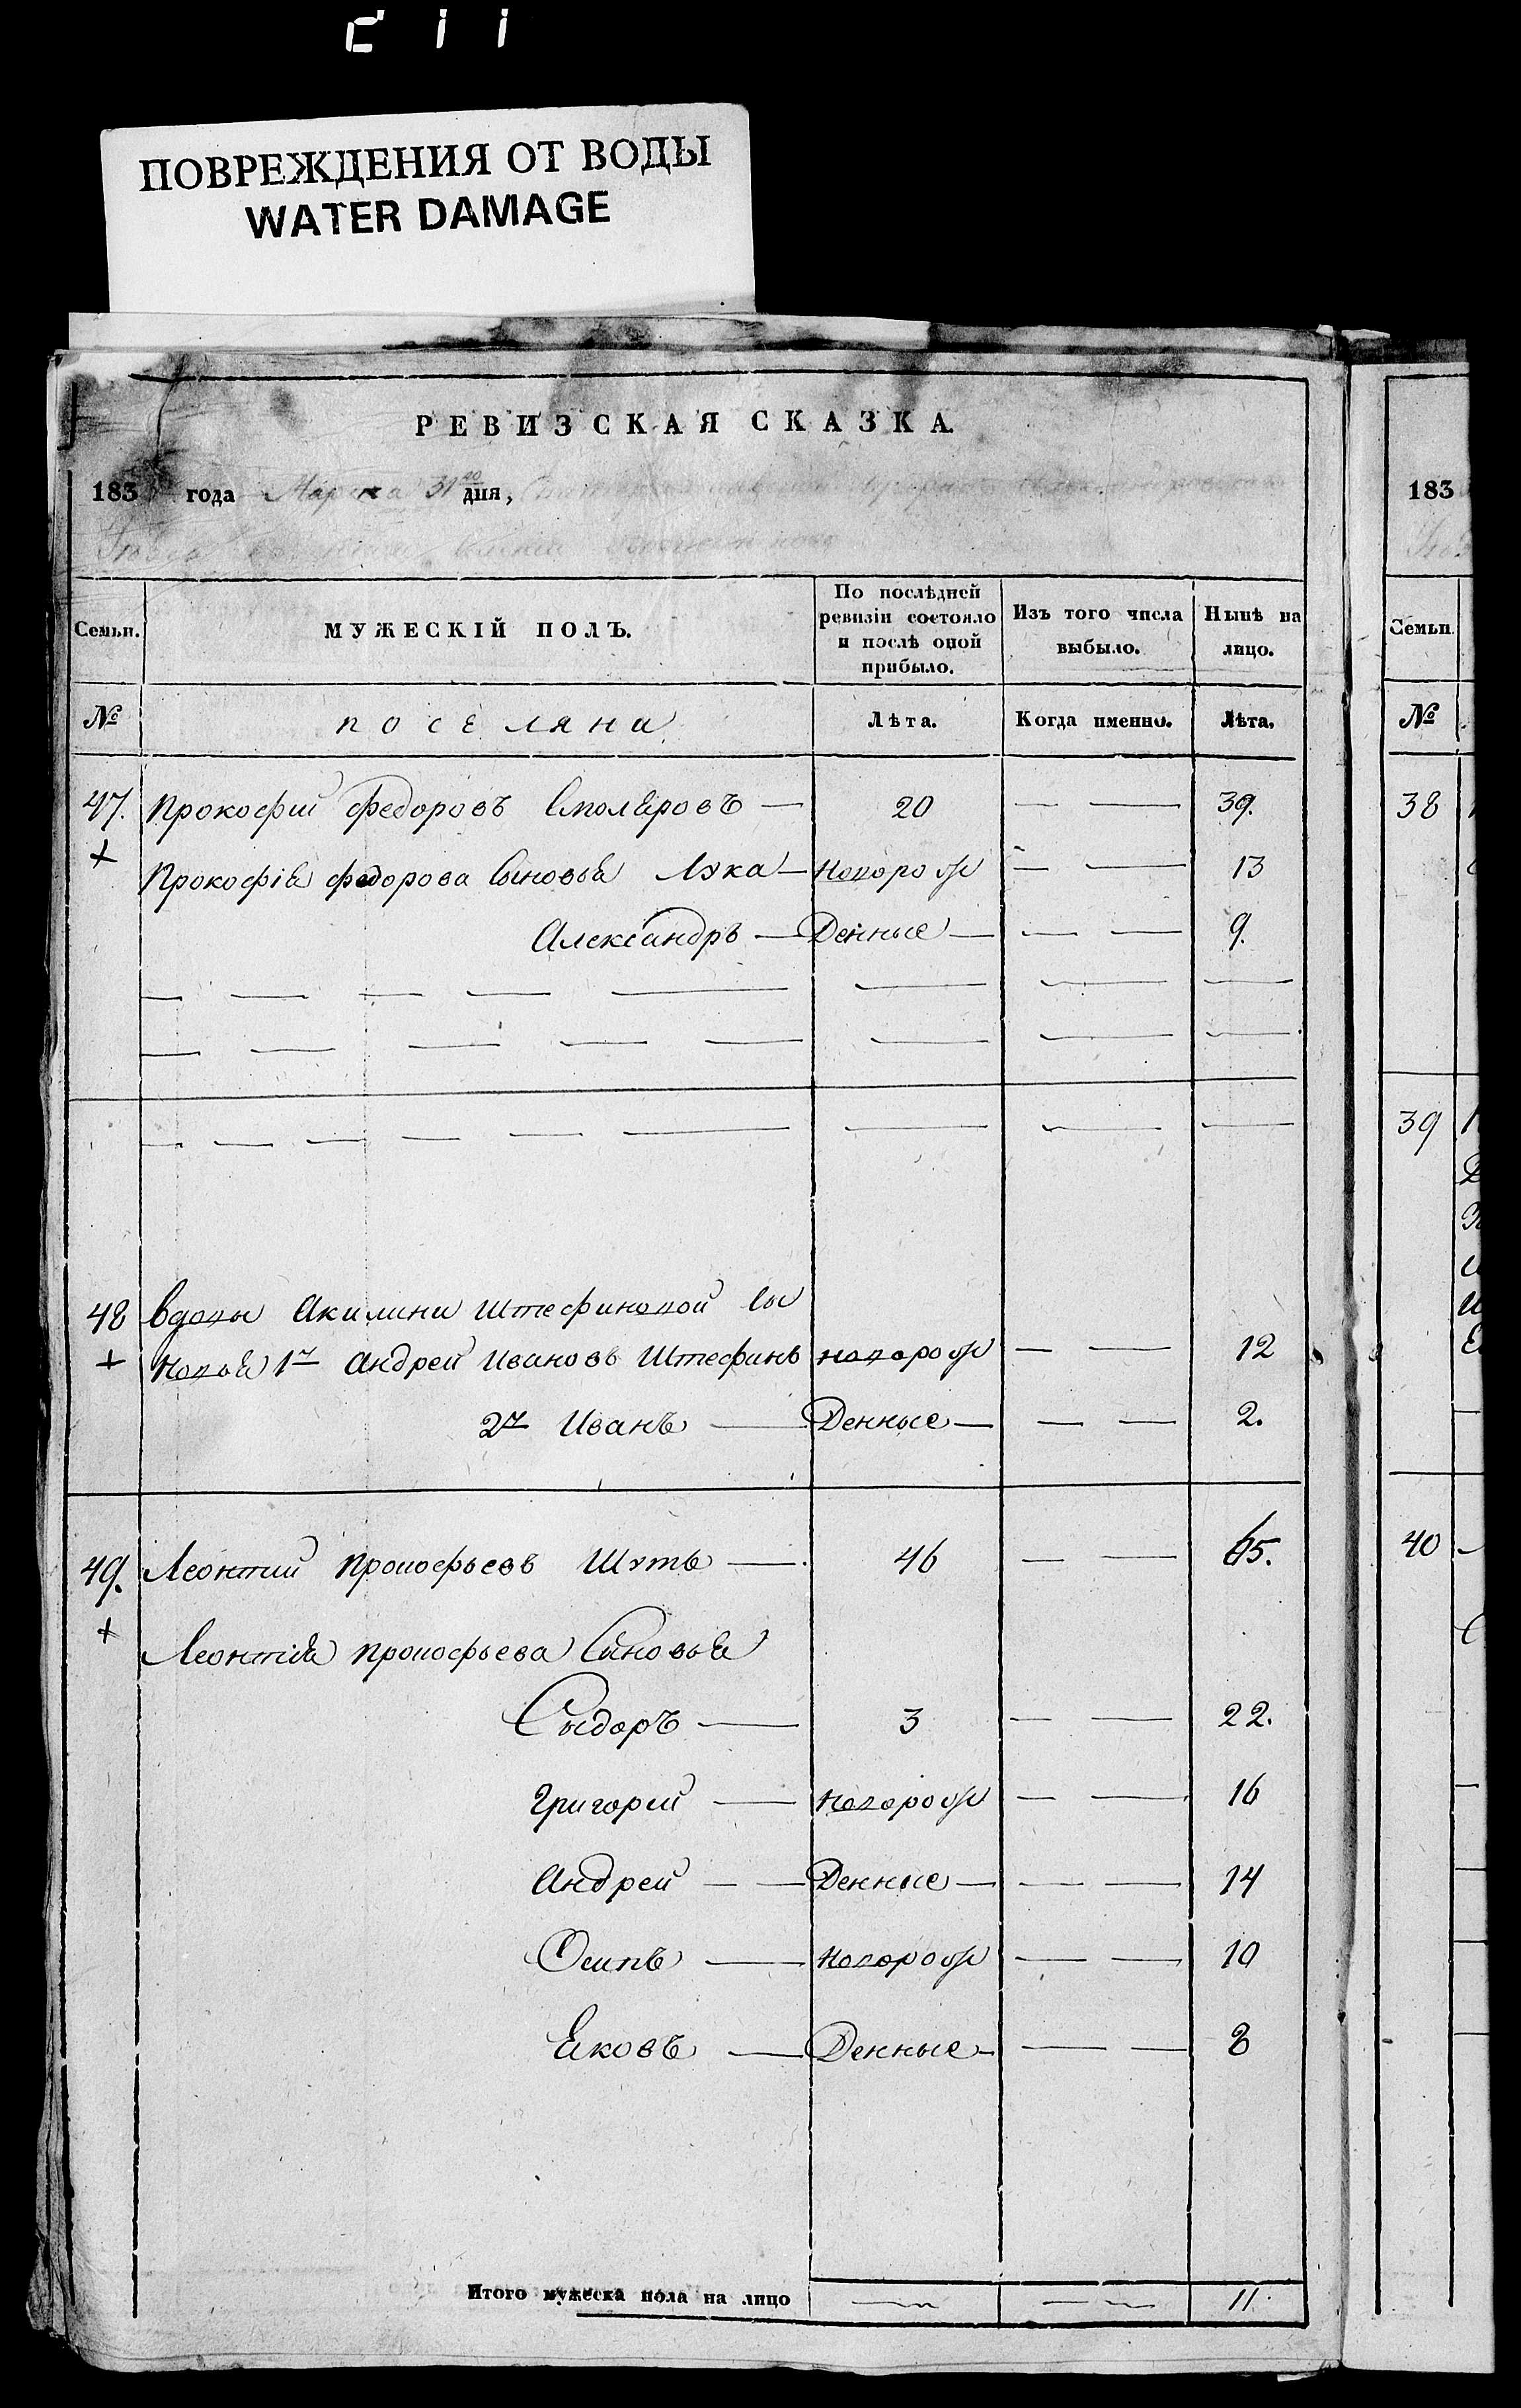 ПОВРЕЖДЕНИЯ ОТ ВОДЫ
WATER DAMAGE
РЕВИЗСКАЯ СКАЗКА.
183 года Марта 31го дня,
183
Семьи.
МУЖЕСКІЙ ПОЛЪ.
По послѣдней ревизіи состояло и послѣ оной прибыло.
Изъ того числа выбыло.
Нынѣ на лицо.
Семьи.
№ поселяна Лѣта. Когда именно. Лѣта. №
47. Прокофий Федоровъ Столяровъ — 20 — — 39. 38
+ Прокофія Федорова Сыновья Лука — новорож — — 13
Александръ — Денные — — — 9.
39
48 вдовы Акилини Штефиновой сы
+ новья 1й Андрей Ивановъ Штефинъ новорож — — 12
2й Иванъ — Денные — — — 2.
49. Леонтий Прокофьевъ Шутъ — 46 — — 65. 40
+ Леонтія Прокофьева Сыновья
Сыдоръ — 3 — — 22.
Григорей — новорож — — 16
Андрей — — Денные — — — 14
Осипъ — новорож — — 10
Яковъ — Денные — — — 8
Итого мужеска пола на лицо — — 11.